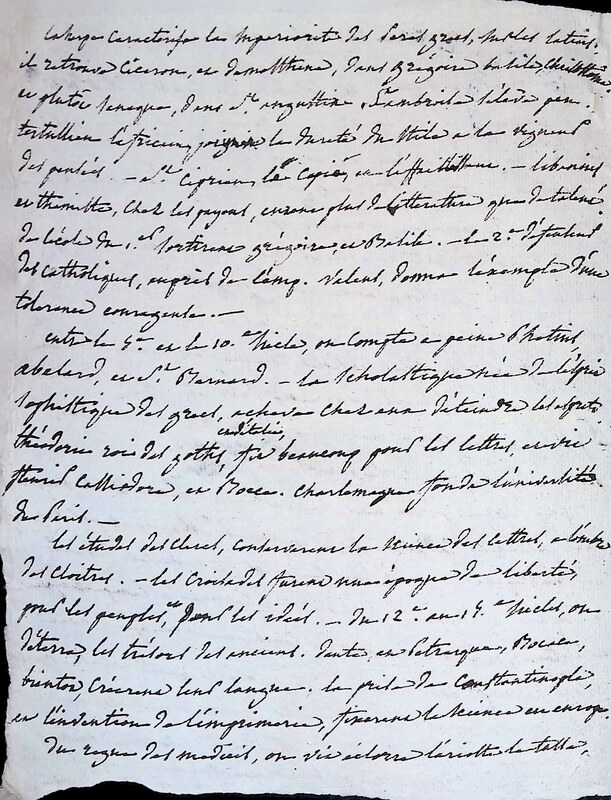 laharpe caractérise la supériorité des peres grecs, sur les latins.
il retrouve Ciceron, et demosthene, dans gregoire basile, chrisostome
et plutôt seneque, dans st. augustin. St ambroise s'éleva peu.
tertullien l'africain, joignit la dureté du stile a la vigueur
des pensées. — St. Ciprien, le copie, en
et themiste, chez les payens, eurent plus de litterature que de talent
de l'école du 1.er sortirent grégoire, et Basile. — le 2.e défenseur
des catholiques, auprès de l'emp. Valens, donna l'exemple d'une
tolerance courageuse. —
entre le 5.e et le 10.e siècle, on compte a peine Photius,
abelard, et St. Bernard. — la scholastique née de l'esprit
sophistique des grecs, acheva chez eux d'éteindre les esprits
théodoric roi des goths, en italie, fit beaucoup pour les lettres, et vit
fleurir Cassiodore, et Boece. Charlemagne fonda l'université
de Paris. —
les études des clercs, conserverent la science des lettres, a l'ombre
des cloitres. — les croisades furent une époque de liberté,
pour les peuples, et pour les idées. — du 12.e au 15.e siècles, on
déterra, les trésors des anciens. dante, et Petrarque, Bocace,
bientôt, créerent leur langue. la prise de Constantinople,
et l'invention de l'imprimerie, fixerent la science en europe
du regne des medicis, on vit éclorre l'arioste le tasse,